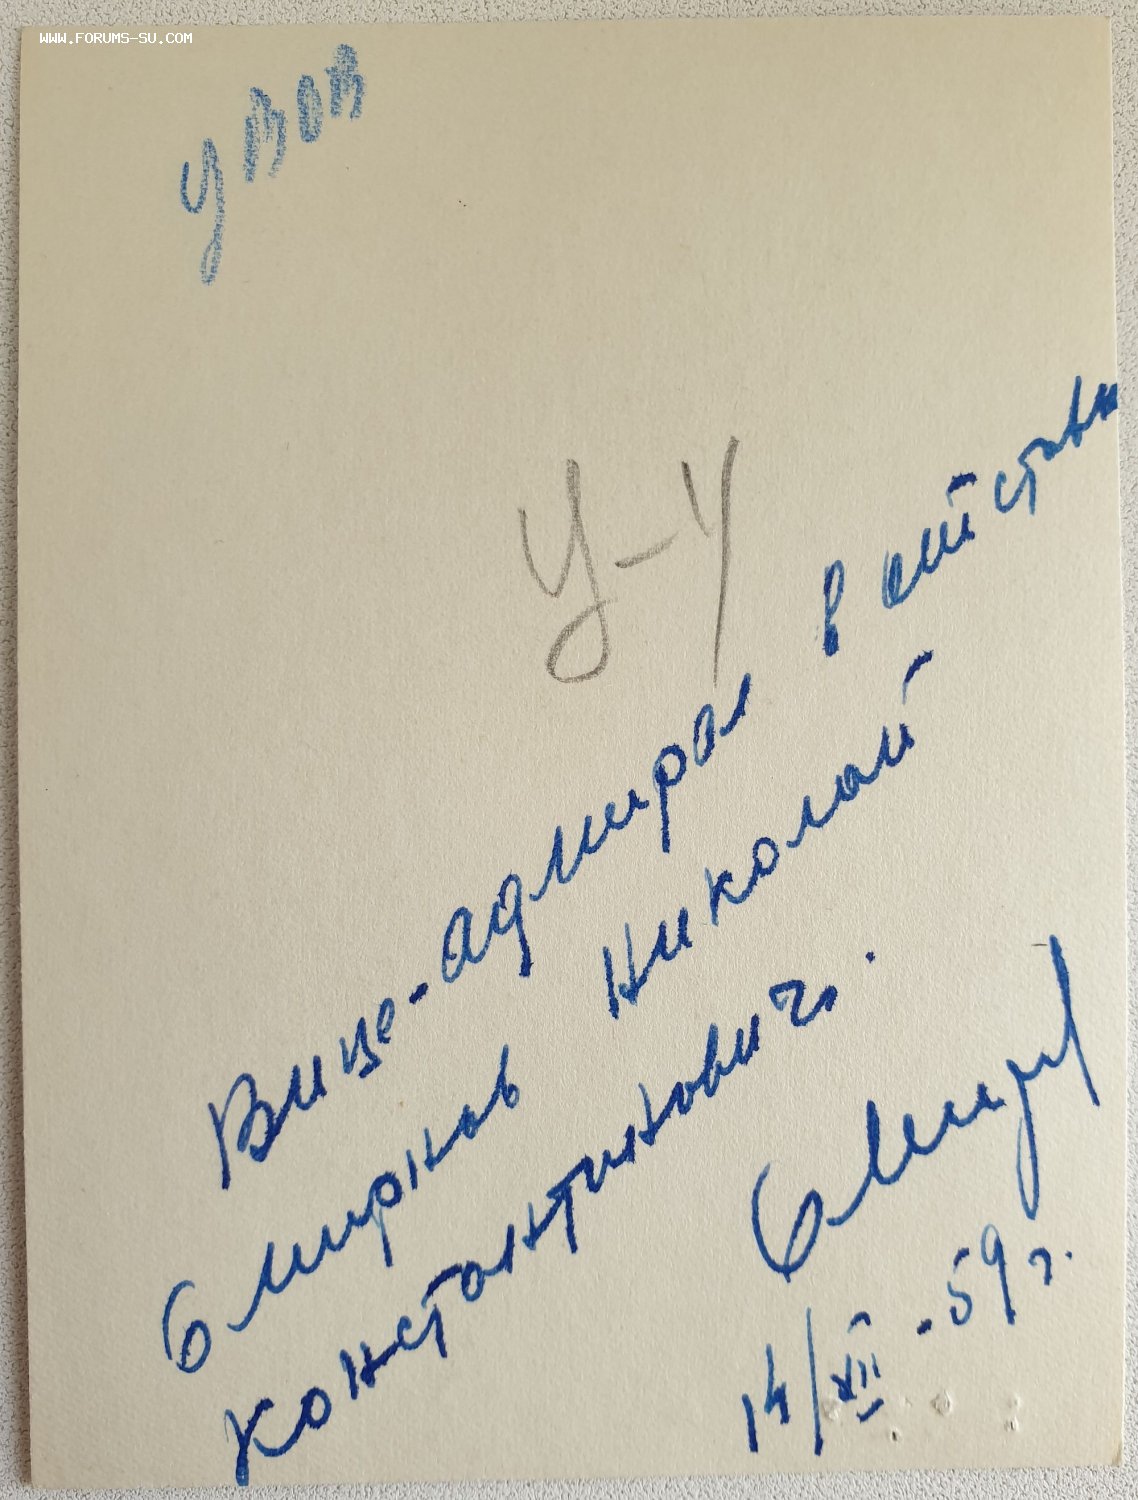 WWW.FORUMS-SU.COM
У-4
Вице-адмирал в отставк
Смирнов Николай
Константинович.
14/XII-59 г.